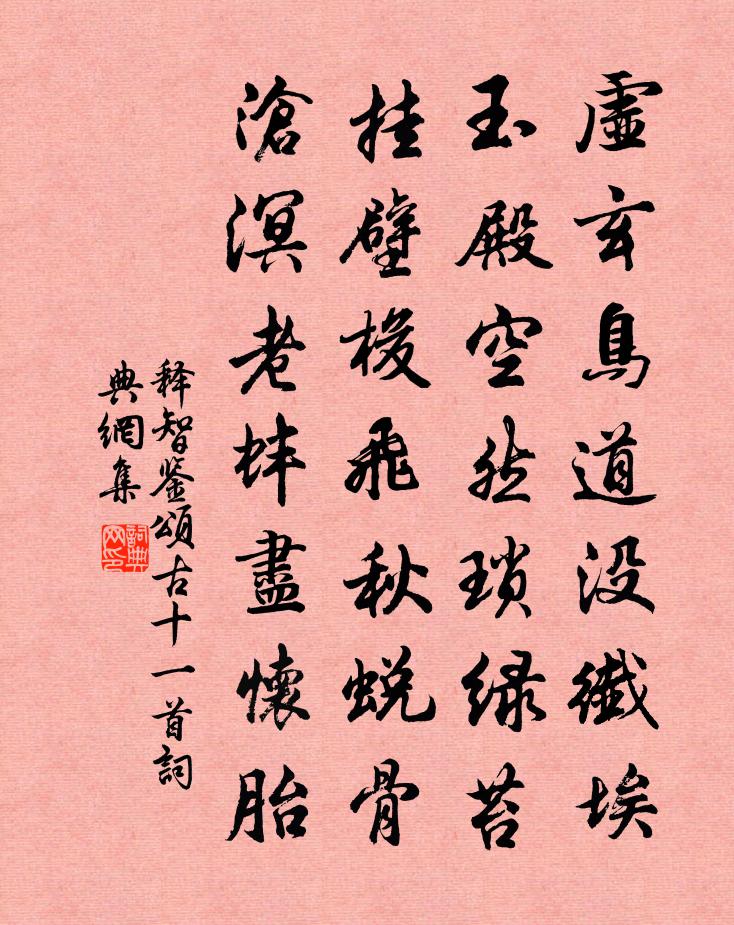 虛玄鳥道没纖埃
玉殿空然瑣緑苔
挂壁梭飛秋蜕骨
滄溟老蚌盡懷胎
释智鉴頌古十一首詞
典網集
詞典
网印